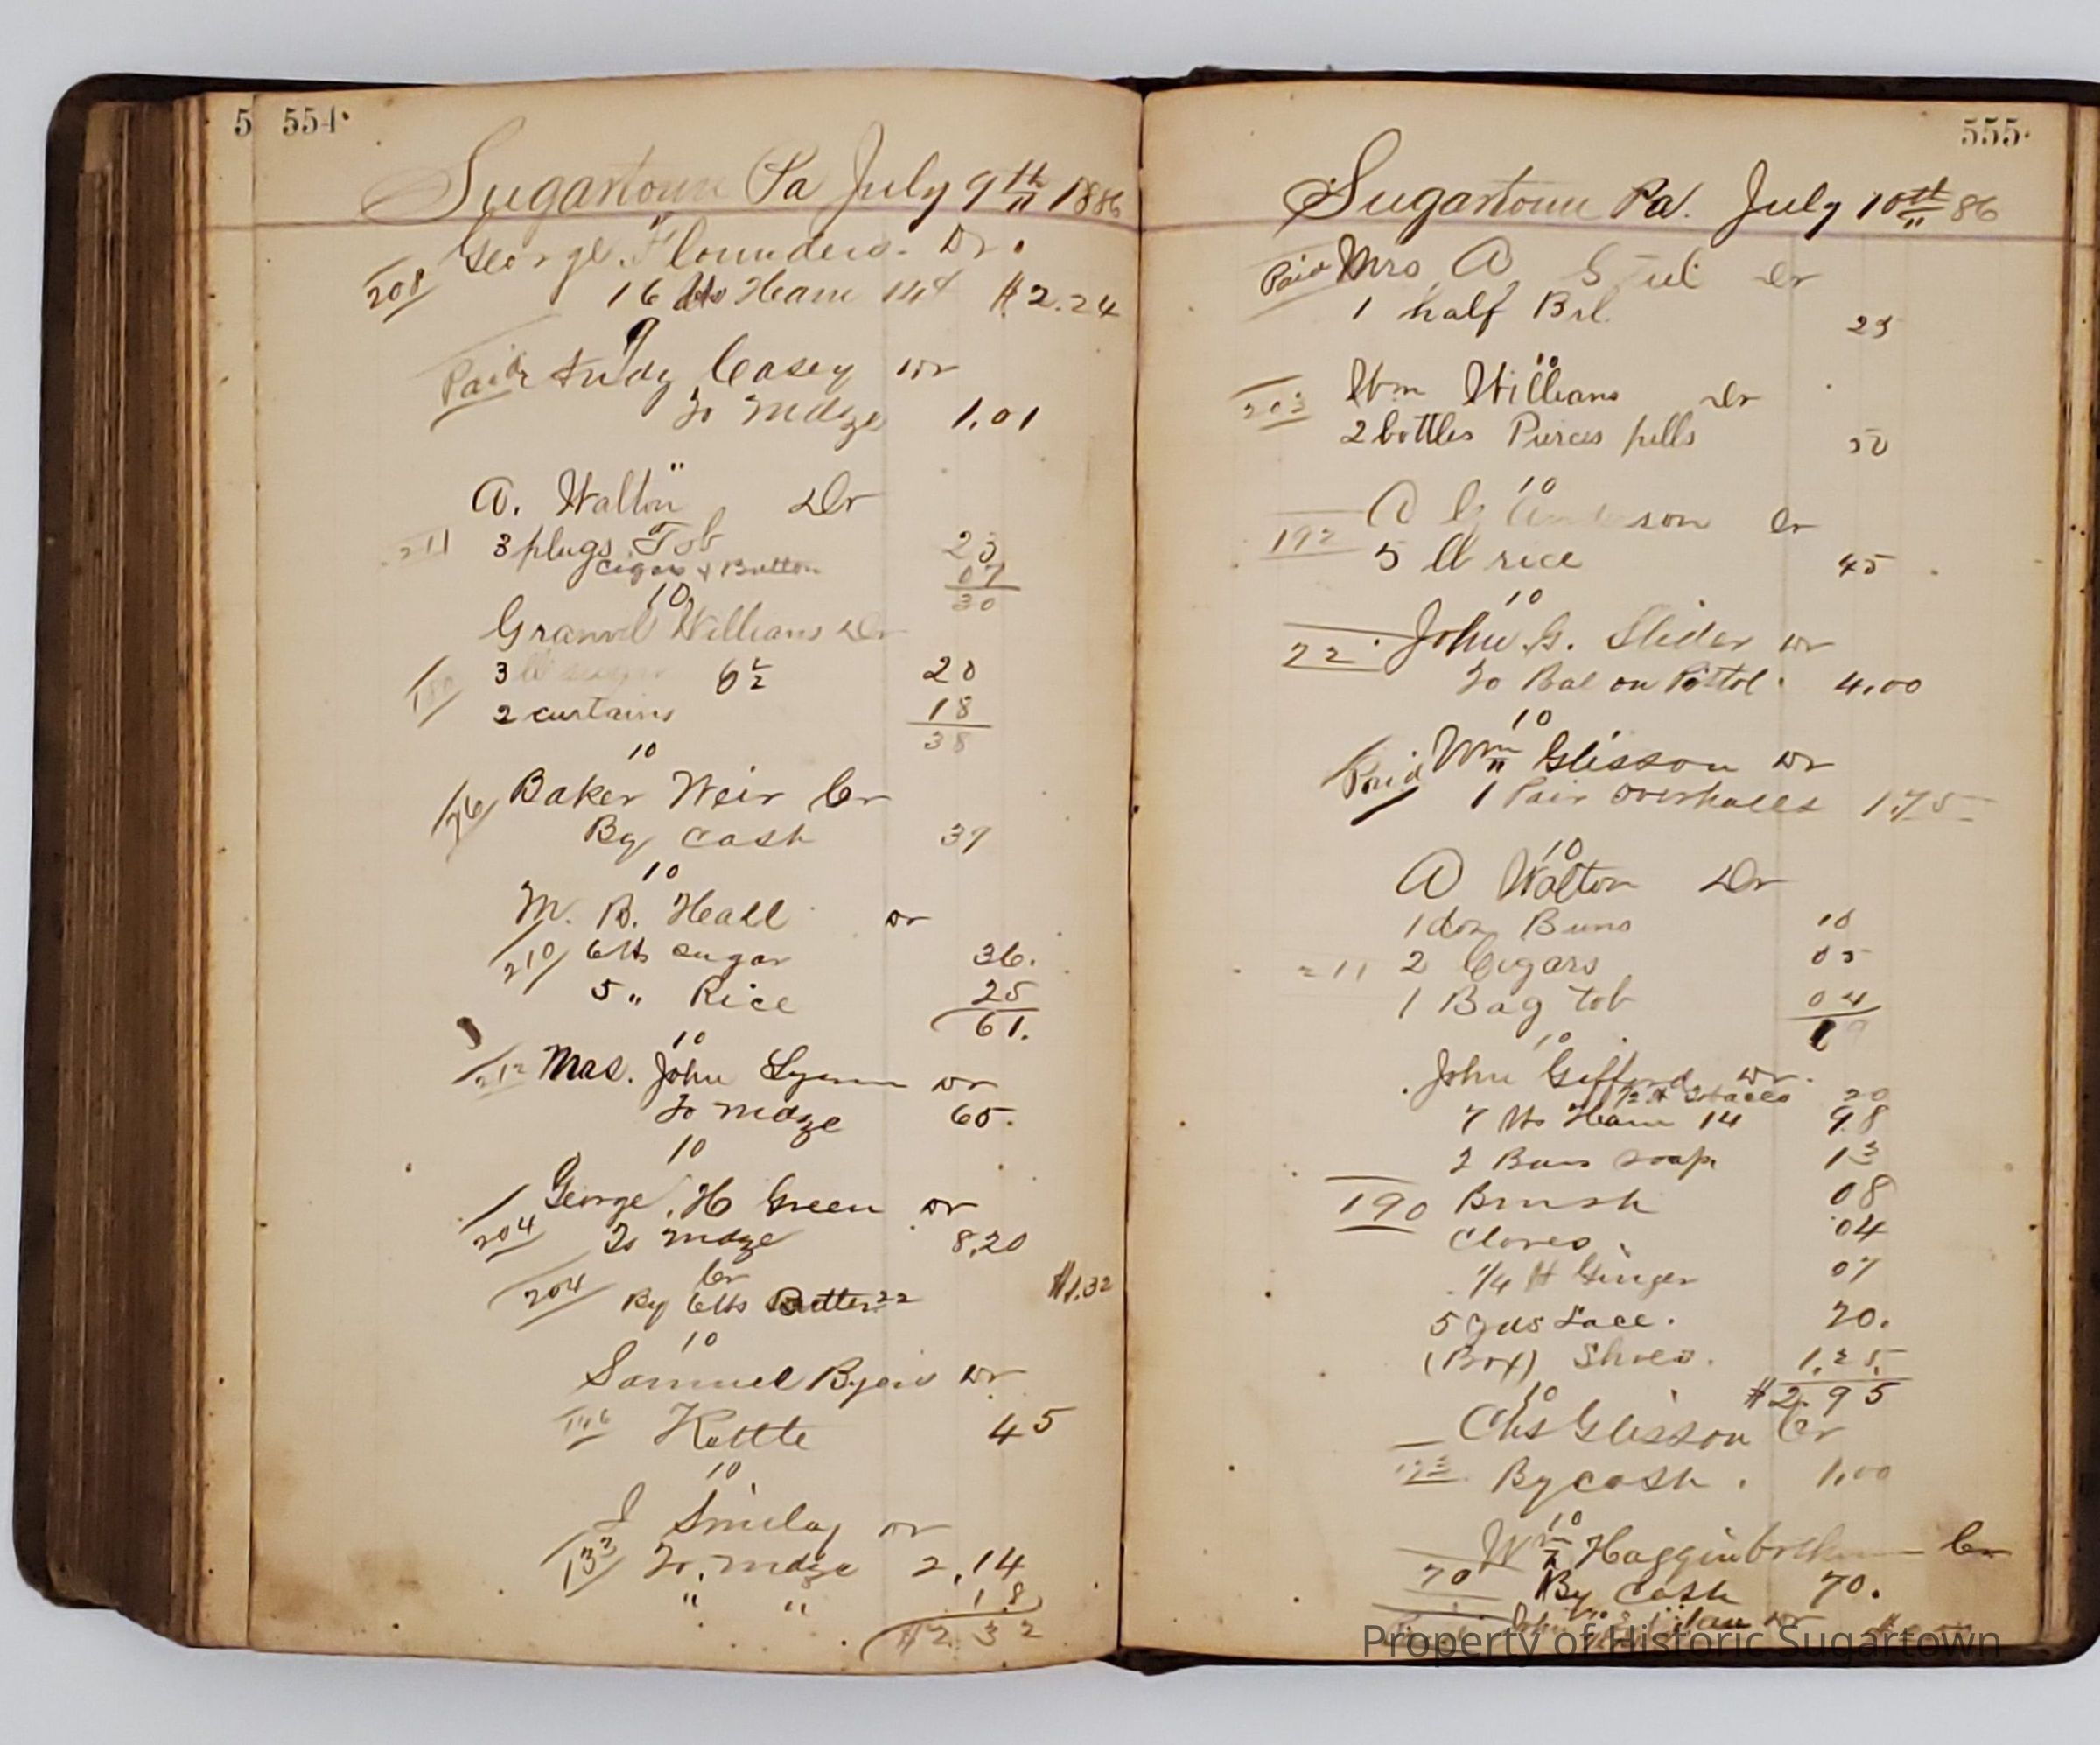 5 554.
Sugartown Pa July 9th 1886
"
George Flounders. Dr.
208 16 lbs Ham 14¢ $2.24
9
Paid Andy Casey Dr
To Mdze 1.01
"
A. Walton Dr
211 3 plugs Tob 23
Cigars & Button 07
30
10
Granvil Williams Dr
3 lb sugar 6½ 20
2 curtains 18
38
10
76 Baker Weir Cr
By Cash 39
10
M. B. Heall Dr
210 6 lbs sugar 36.
5 " Rice 25
61.
10
212 Mrs. John Lynn Dr
To mdze 65.
10
George. H Green Dr
204 To mdze 8.20
Cr
204 By 6 lbs Butter 22 $1.32
10
Samuel Byers Dr
146 Kettle 45
10
J Smiley Dr
133 To. mdze 2.14
" " .18
$2.32
555.
Sugartown Pa. July 10th 86
Paid Mrs A Dr
1 half Brl. 25
10
203 Wm Williams Dr
2 bottles Purces pills 50
10
A G Anderson Cr
192 5 lb rice 45
10
22 John G. Slider Dr
To Bal on Pistol. 4.00
10
Paid Wm Glisson Dr
1 Pair overhalls 1.75
10
A Walton Dr
1 doz Buns 10
211 2 Cigars 05
1 Bag tob 04
19
10
John Gifford Dr.
½ # Tobacco 20
7 lbs Ham 14 98
2 Bars soap 13
190 Brush 08
Cloves. 04
1/4 # Ginger 07
5 yds Lace. 20.
(Box) Shoes. 1.25.
$2.95
10
Chs Glisson Cr
By cash. 1.00
10
Wm Hagginbothem Cr
70 By Cash 70.
John Dr
Property of Historic Sugartown